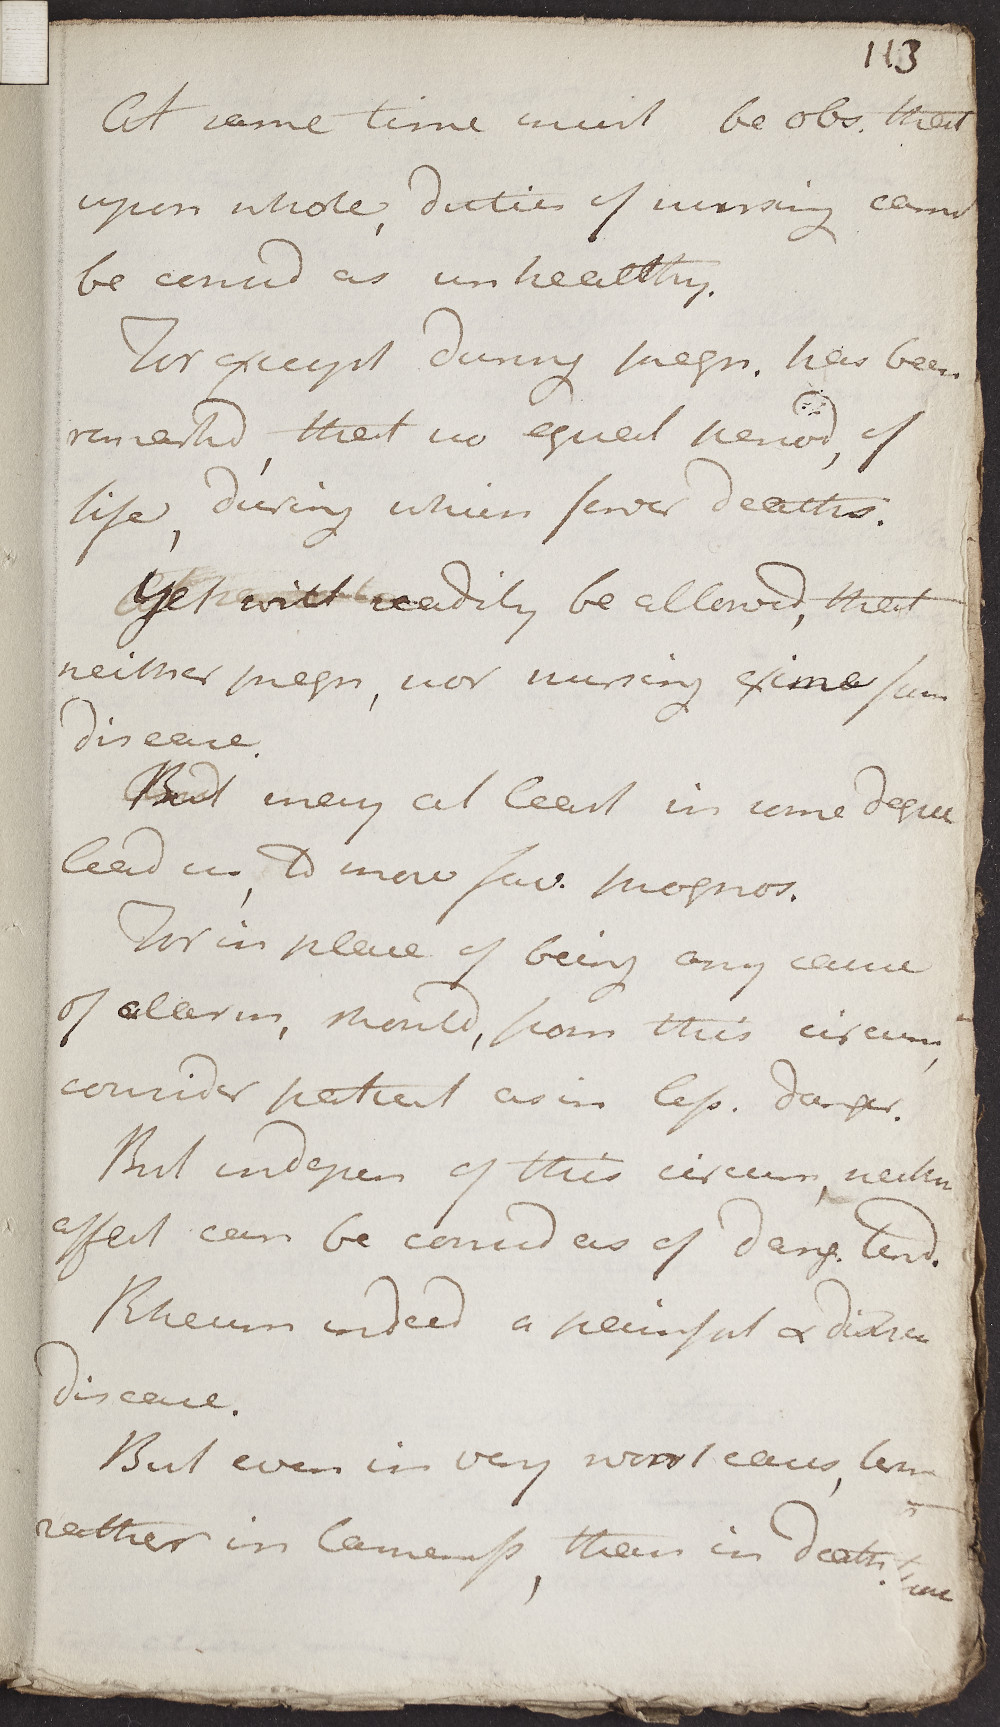 113
At same time must be obs. that
upon whole, duties of nursing cannot
be consid as unhealthy.
For except during pregn. has been
remarkd, that no equal period, of
life, during which fewer deaths.
Yet will readily be allowed, that
neither pregn, nor nursing exime from
disease.
But may at least in some degree
lead us, to more fav. prognos.
For in place of being any cause
of alarm, should, from this circum,
consider patient as in less. danger.
But indepen of this circum, neither
affect can be consid as of dang. tend.
Rheum indeed a painful & distress
disease.
But even in very worst cases, term
rather in lameness, than in death.